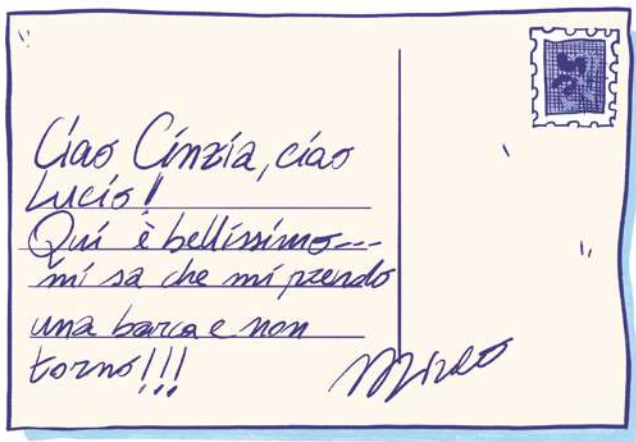 Ciao Cinzia, ciao
Lucio!
Qui è bellissimo...
mi sa che mi prendo
una barca e non
torno!!!
Mirko